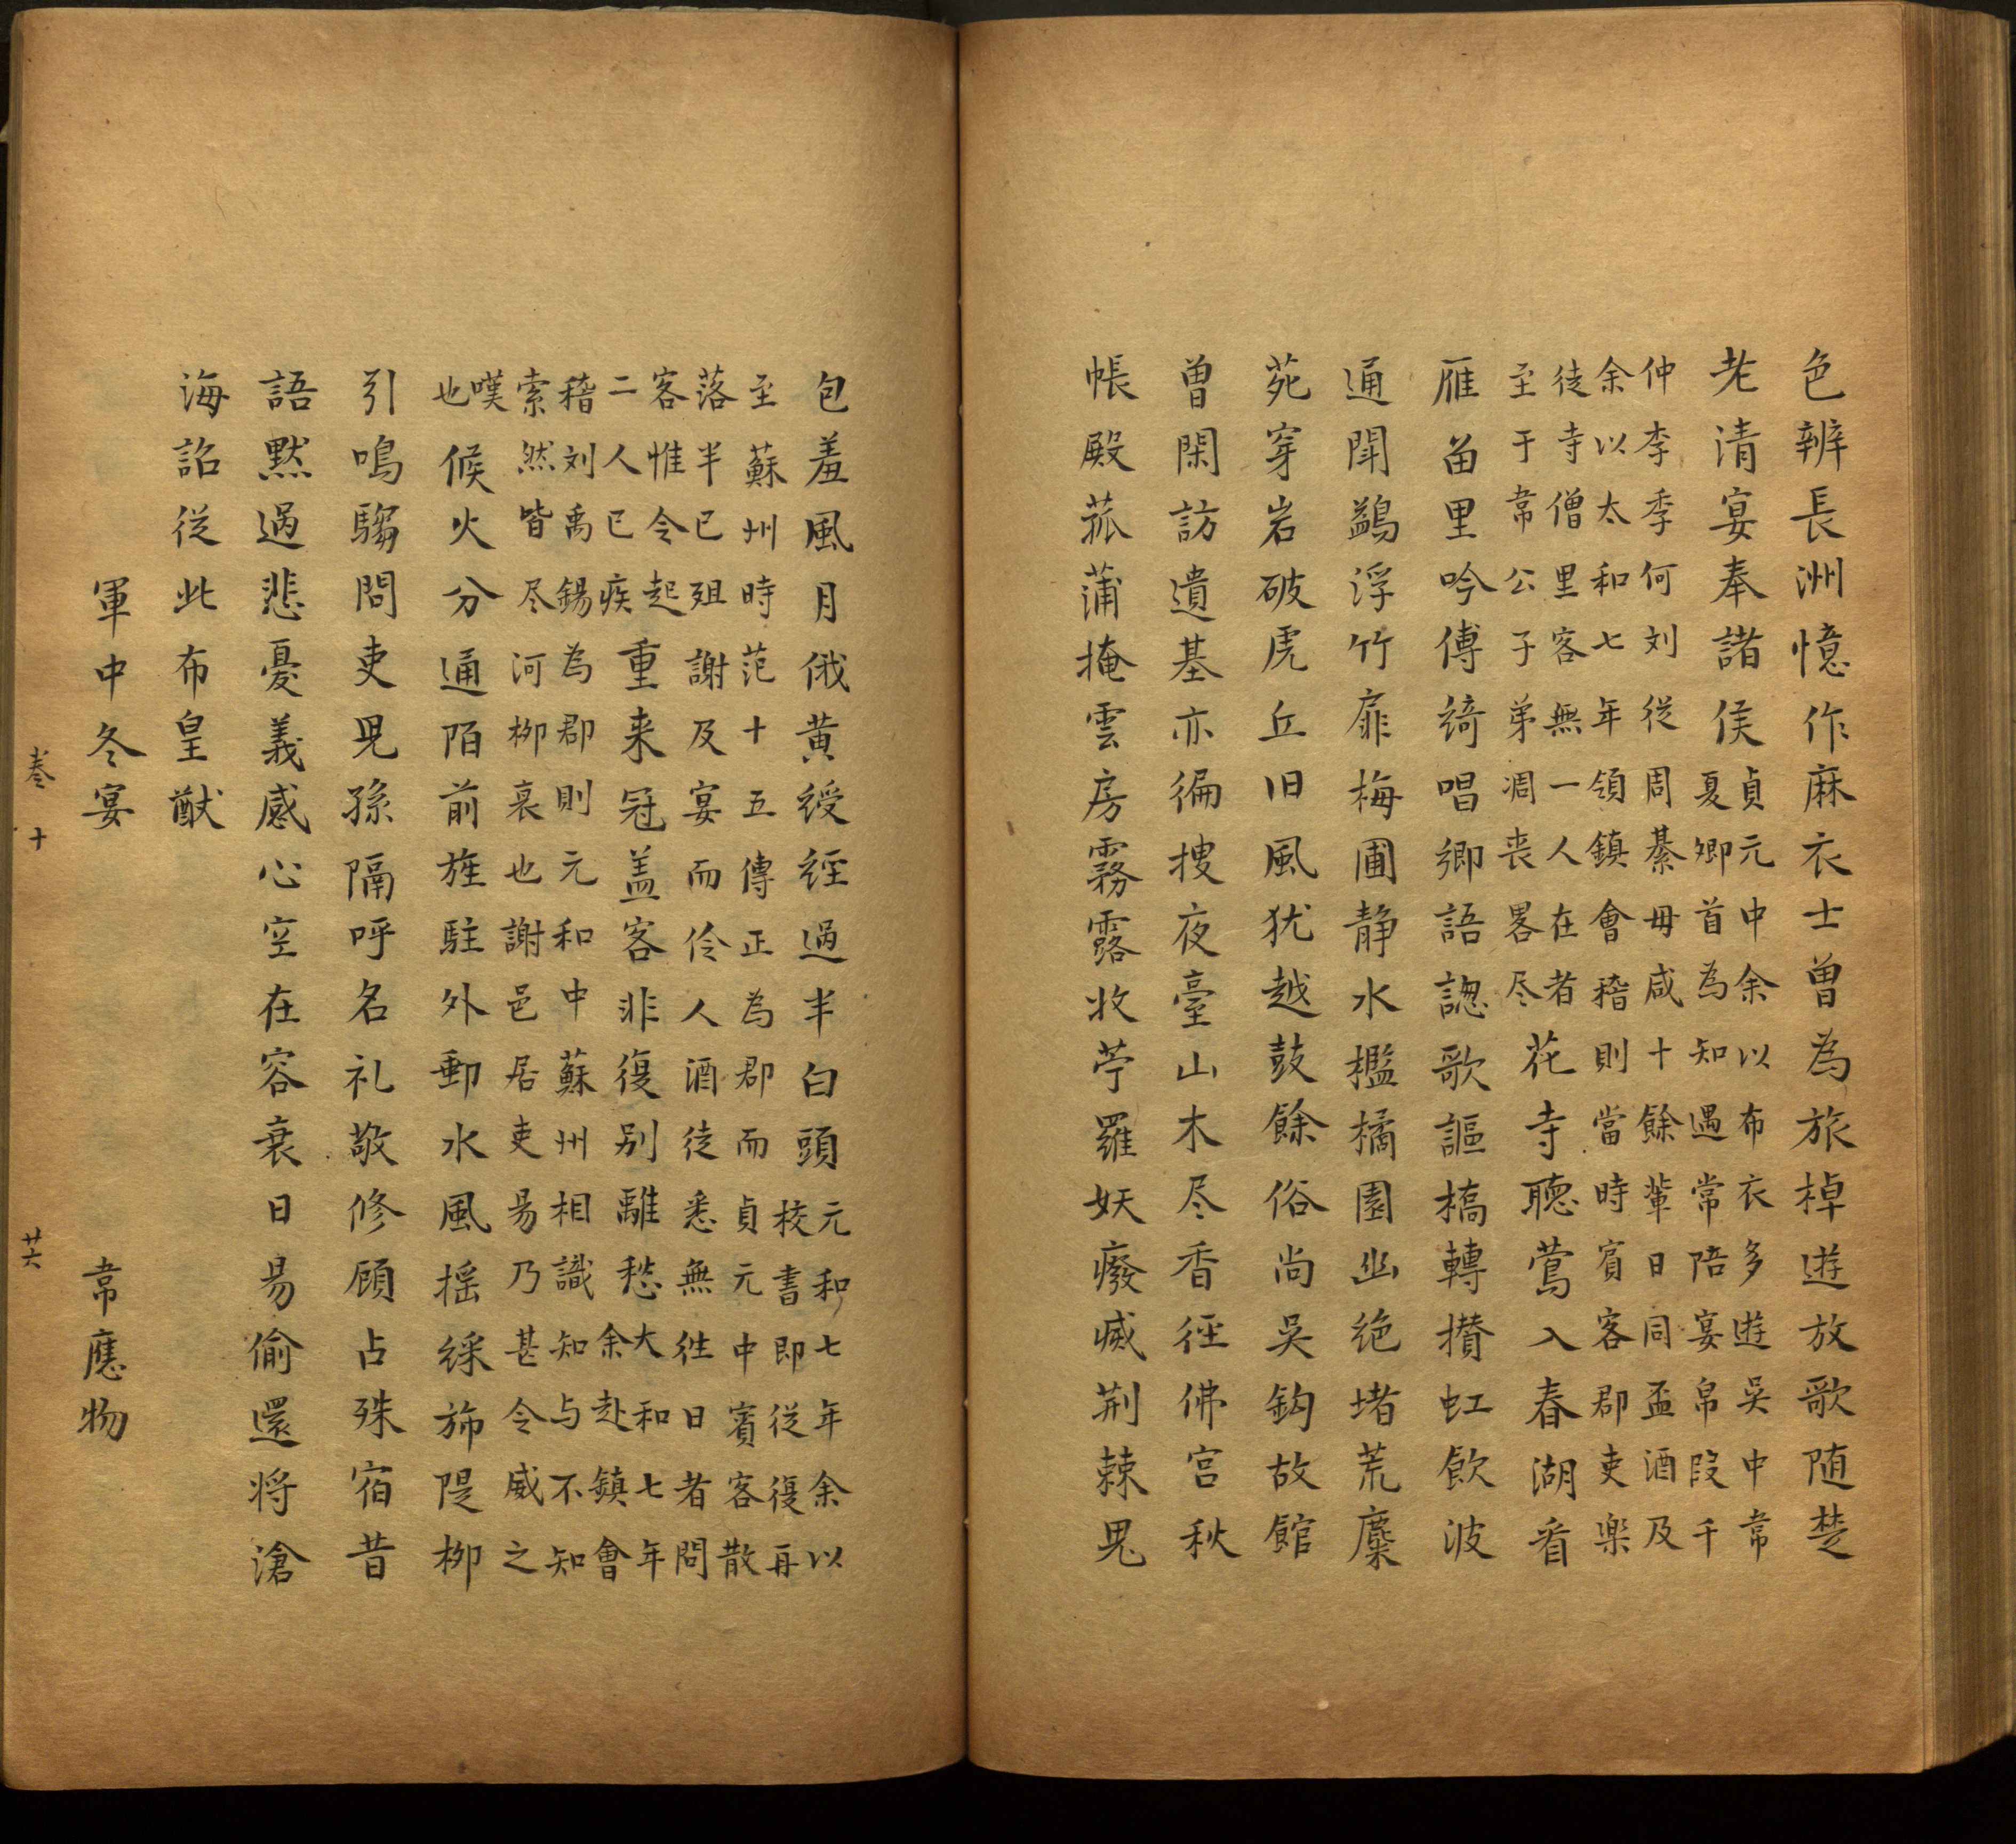 色辨長洲憶作麻衣士曽為旅棹遊放歌随楚
老清宴奉諸侯貞元中余以布衣多遊吳中韋
夏卿首為知遇常陪宴帛段千
仲李季何刘從周綦毋咸十餘輩日同盃酒及
余以太和七年領鎮會稽則當時賓客郡吏樂
徒寺僧里客無一人在者
至于韋公子弟凋喪畧尽花寺聽鶯入春湖看
雁畄里吟傅綺唱鄉語諰歌謳橋轉攢虹飲波
通聞鷁浮竹扉梅圃静水檻橘園幽绝堵荒麋
苑穿岩破虎丘旧風犹越鼓餘俗尚吳鈎故館
曽閑訪遺基亦徧搜夜臺山木尽香径佛宮秋
帳殿菰蒲掩雲房霧露收苧羅妖癈㓕荆棘鬼
包羞風月俄黄綬経過半白頭元和七年余以
校書即從復再
至蘇州時范十五傳正為郡而貞元中賓客散
落半已殂謝及宴而伶人酒徒悉無往日者問
客惟令起
二人已疾重来冠盖客非復别離愁大和七年
余赴鎮會
稽刘禹錫為郡則元和中蘇州相識知与不知
索然皆尽河栁裒也謝邑居吏昜乃甚令威之
嘆
也候火分通陌前旌駐外郵水風揺綵斾隄栁
引鳴騶問吏児孫隔呼名礼敬修顾占殊宿昔
語黙過悲憂義感心空在容衰日昜偷還将滄
海詔從此布皇猷
軍中冬宴 韋應物
卷十 廿六